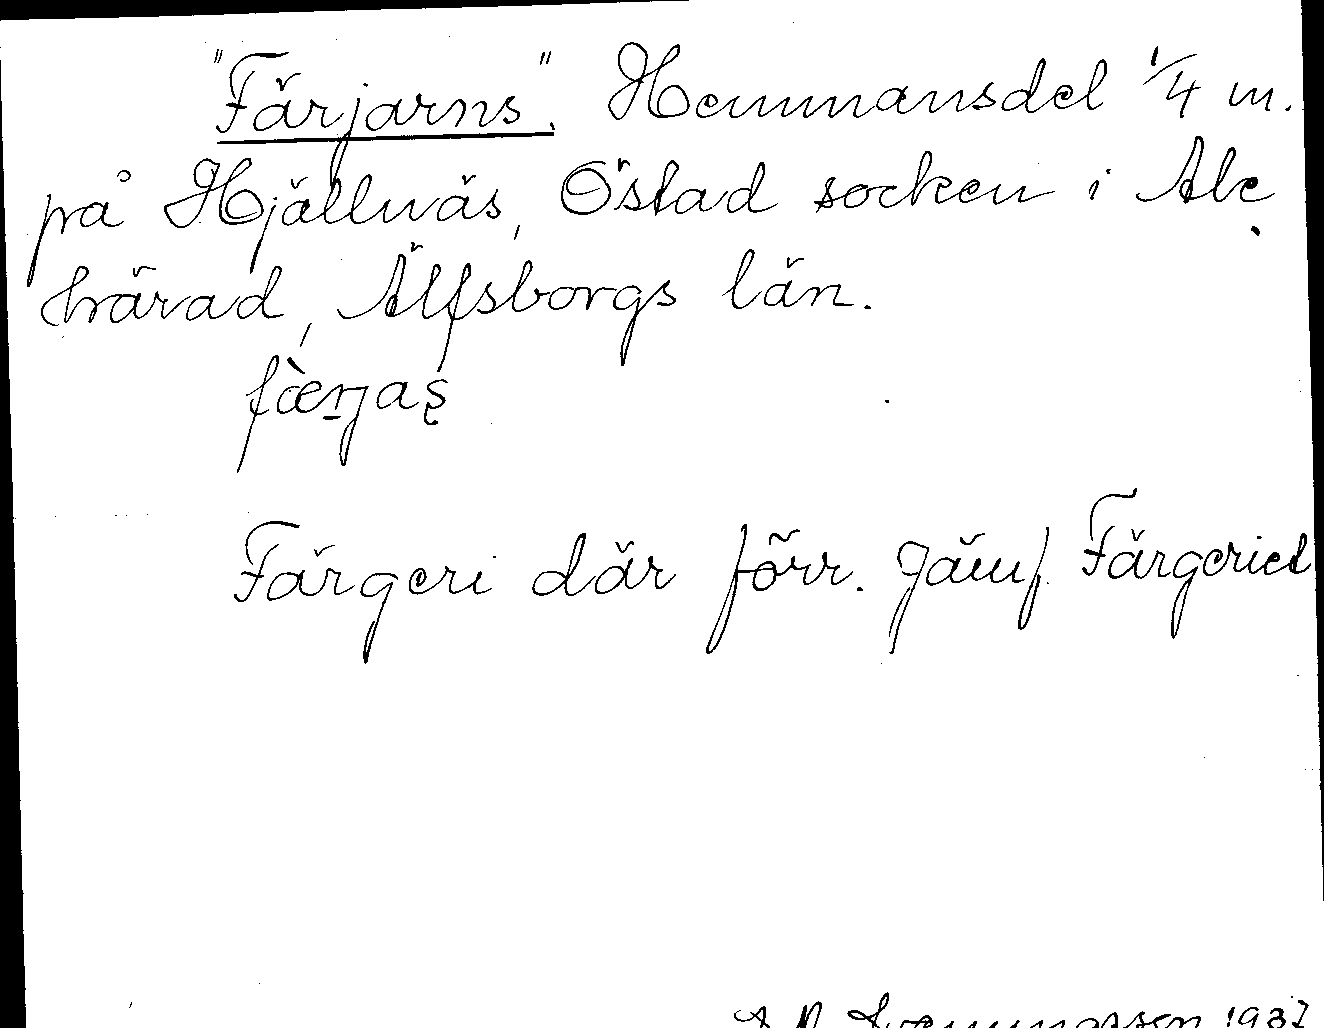 "Färjarns". Hemmansdel 1/4 m.
på Hjällnäs, Östad socken i Ale
härad, Älfsborgs län.
fæ̀rjas̨
Färgeri där förr. Jämf. Färgeriet
1937